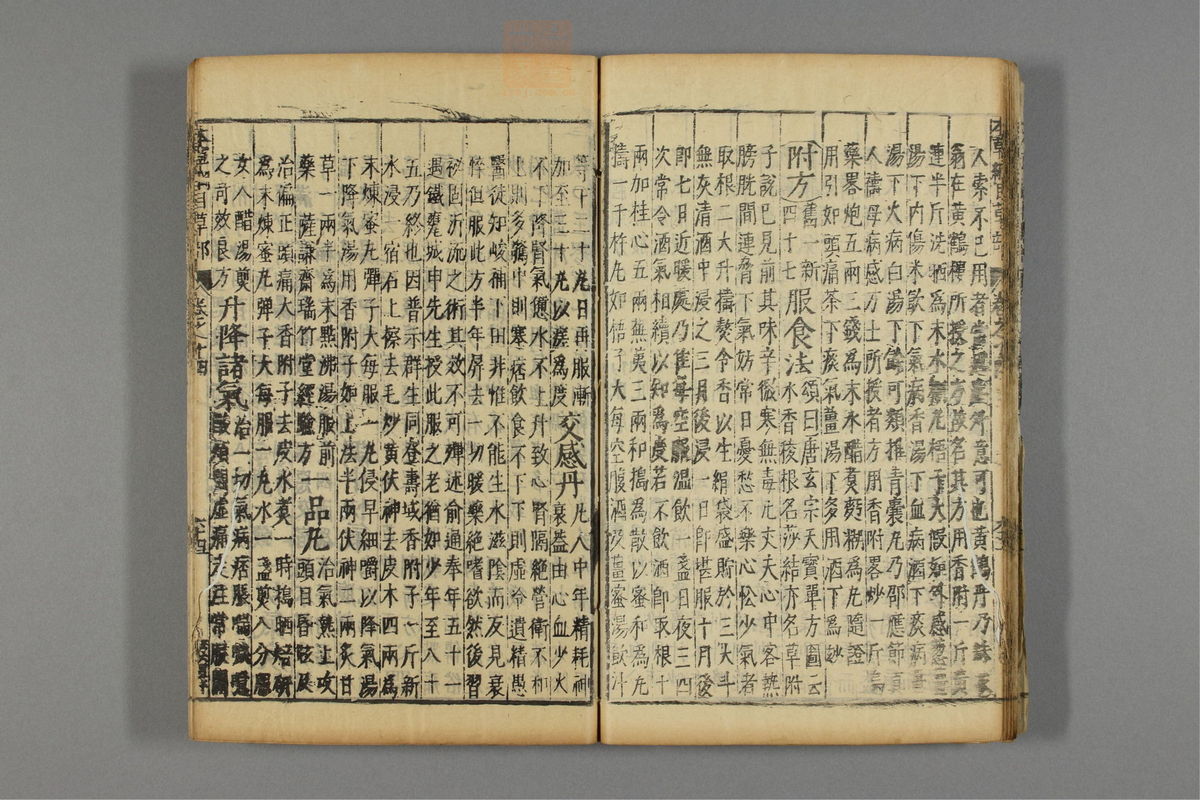 人索不已用者當盡意可也黃鶴丹乃銖衣
翁在黃鶴樓所授之方故名其方用香附一斤黃
連半斤洗晒爲末水糊丸梧子大假如外感葱薑
湯下內傷米飲下氣病香湯下血病酒下痰病薑
湯下火病白湯下餘可類推青囊丸乃邵應節真
人禱母病感方士所授者方用香附畧炒一斤烏
藥畧炮五兩三錢爲末水醋煑麪糊爲丸隨證
用引如頭痛茶下痰氣薑湯下多用酒下爲妙
附方 舊一新四十七 服食法 頌曰唐玄宗天寶單方圖云水香稜根名莎結亦名草附
子說已見前其味辛微寒無毒凡丈夫心中客熱
膀胱間連脅下氣妨常日憂愁不樂心忪少氣者
取根二大升擣熬令香以生絹袋盛貯於三大斗
無灰清酒中浸之三月後浸一日即堪服十月後
即七日近暖處乃佳每空腹温飲一盞日夜三四
次常令酒氣相續以知爲度若不飲酒即取根十
兩加桂心五兩蕪荑三兩和搗爲散以蜜和爲丸
擣一千杵丸如梧子大每空腹酒及薑蜜湯飲汁
等下二十丸日再服漸
加至三十丸以瘥爲度 交感丹 凡人中年精耗神衰蓋由心血少火
不下降腎氣憊水不上升致心腎隔絶營衛不和
上則多驚中則塞痞飲食不下下則虛冷遺精愚
醫徒知峻補下田非惟不能生水滋陰而反見衰
悴但服此方半年屏去一切暖藥絶嗜欲然後習
秘固泝流之術其效不可殫述俞通奉年五十一
遇鐵甕城申先生授此服之老猶如少年至八十
五乃終也因普示群生同登壽域香附子一斤新
水浸一宿石上擦去毛炒黃伏神去皮木四兩爲
末煉蜜丸彈子大每服一丸侵早細嚼以降氣湯
下降氣湯用香附子如上法半兩伏神二兩炙甘
草一兩半爲末點沸湯服前
藥 薩謙齋瑤竹堂經驗方 一品丸 治氣熱上攻頭目昏眩及
治偏正頭痛大香附子去皮水煑一時搗晒焙研
爲末煉蜜丸彈子大每服一丸水一盞煎八分服
女人醋湯煎
之 奇效良方 升降諸氣 治一切氣病痞脹喘噦噫